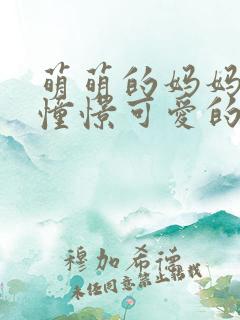 萌萌的妈妈
憧憬可爱的
穆加希德
未经同意禁止转载